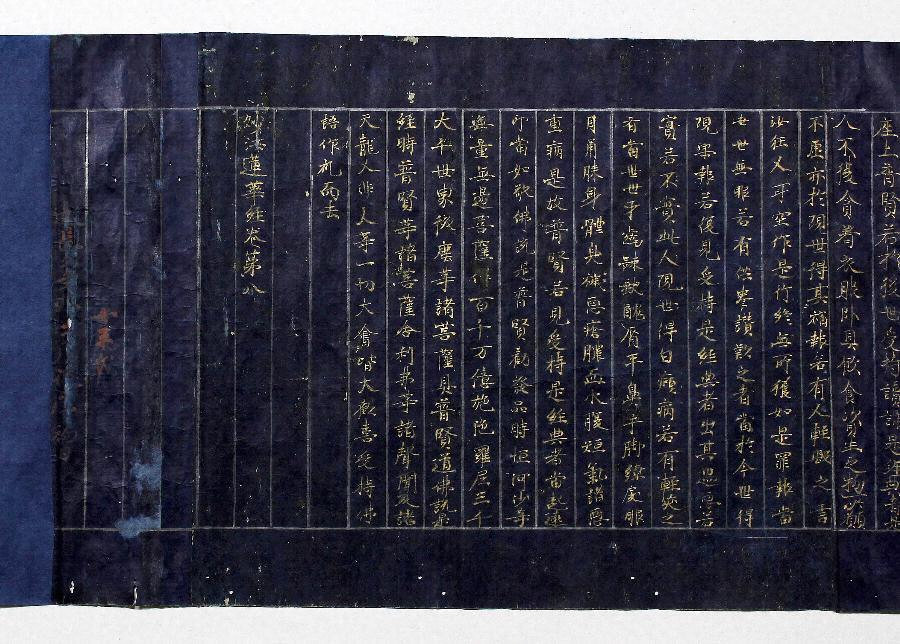 座上普賢若於後世受持讀誦是經典者是
人不復貪著衣服臥具飲食資生之物所願
不虛亦於現世得其福報若有人輕毀之言
汝狂人耳空作是行終無所獲如是罪報當
世世無眼若有供養讚歎之者當於今世得
現果報若復見受持是經典者出其過惡若
實若不實此人現世得白癩病若有輕笑之
者當世世牙齒疎缺醜脣平鼻手脚繚戾眼
目角睞身體臭穢惡瘡膿血水腹短氣諸惡
重病是故普賢若見受持是經典者當起遠
迎當如敬佛說是普賢勸發品時恒河沙等
無量無邊菩薩得百千万億旋陀羅尼三千
大千世界微塵等諸菩薩具普賢道佛說是
經時普賢等諸菩薩舍利弗等諸聲聞及諸
天龍人非人等一切大會皆大歡喜受持佛
語作礼而去
妙法蓮華經卷第八